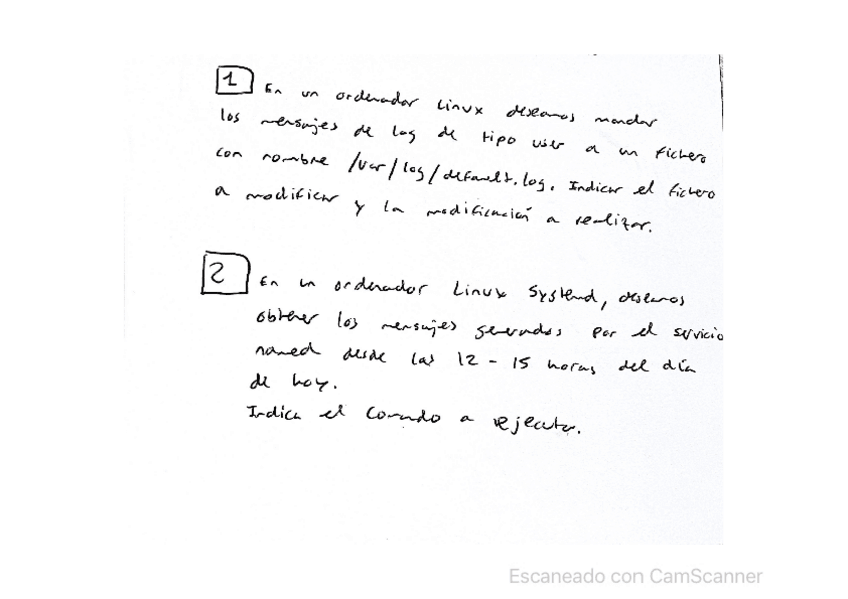 1 En un ordenador Linux deseamos mandar
los mensajes de log de tipo user a un fichero
con nombre /var/log/default.log. Indicar el fichero
a modificar y la modificación a realizar.
2 En un ordenador Linux Systemd, deseamos
obtener los mensajes generados por el servicio
named desde las 12 - 15 horas del día
de hoy.
Indica el comando a ejecutar.
Escaneado con CamScanner